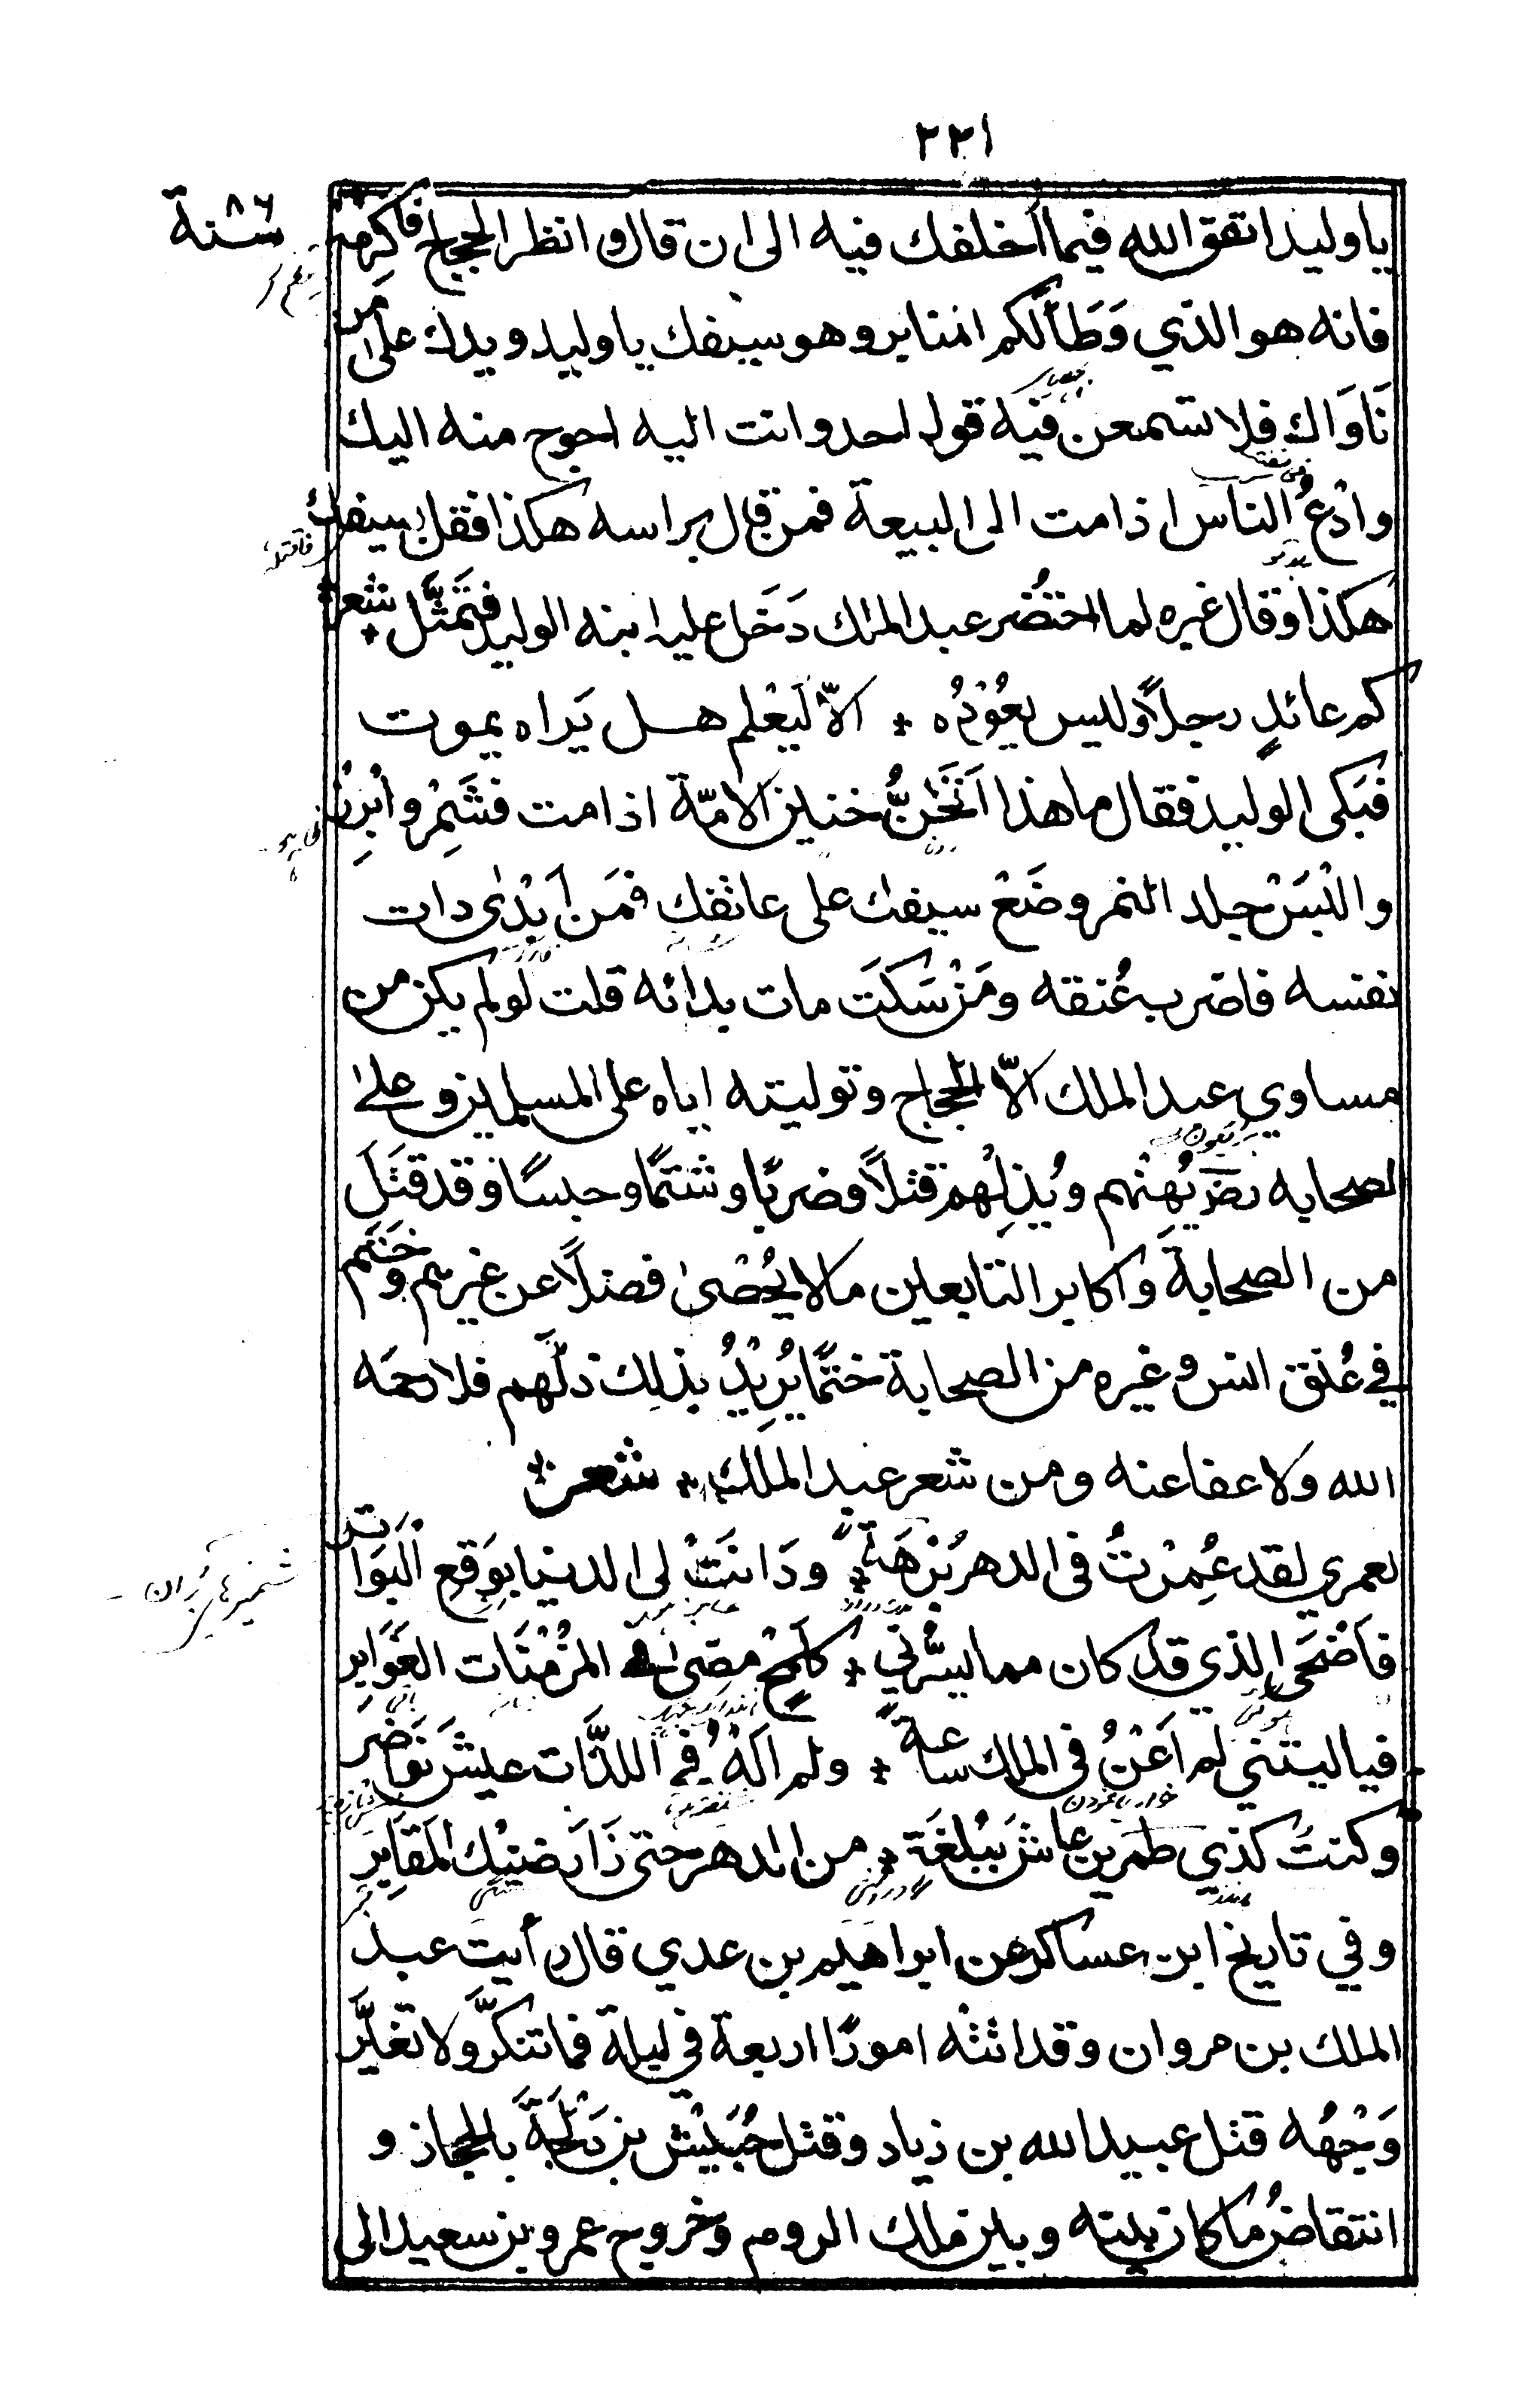 ٢٢١
سنة ٨٦
يا وليد اتق الله فيما اخلفك فيه الى ان قال وانظر الحجاج فاكرمه
فانه هو الذي وَطَأَلكم المنابر وهو سيفك يا وليد ويدك على من
نَاوَاك فلا تسمعن فيه قول احد وانت اليه احوج منه اليك
وادْعُ الناس اذا مت الى البيعة فمن قال براسه هكذا فقل بسيفك
هكذا وقال غيره لما احتُضر عبد الملك دَخَل عليه ابنه الوليد فتَمَثَّل شعر
كم عائدٍ رجلاً وليس يعُوْدُه * الاّ لَيَعْلم هل يَراه يموت
فبَكى الوليد فقال ما هذا اَتَحِنُّ حنين الامّة اذا مت فشَمِّرْ واتْزِرْ
والْبَسْ جلد النمر وضَعْ سيفك على عاتقك فمَن اَبْدٰى ذات
نفسه فاضرب عُنقه ومَنْ سَكَتَ مات بدائه قلت لو لم يكن من
مساوي عبد الملك الاّ الحجاج وتوليته اياه على المسلمين وعلى
الصحابه يُهِيْنُهم ويُذِلُّهم قتلاً وضربًا وشتمًا وحبسًا وقد قَتَلَ
من الصحابة واكابر التابعين ما لا يُحْصٰى فضلاً عن غيرهم وخَتَم
في عُنق انس وغيره من الصحابة ختمًا يُرِيْدُ بذلك ذلَّهم فلا رحمَه
الله ولا عفا عنه ومن شعر عبد الملك * شعر *
لعمري لقد عُمِّرْتُ فى الدهر بُرْهَةً * ودَانَتْ لى الدنيا بِوَقعِ البَوَاتر
فاَضْحَى الذي قد كان مما يسُرُّني * كَلَمْحٍ مضى فى المزْمنَات الغَوَابر
فيا ليتني لم اَعْنُ فى الملك ساعةً * ولم اَلْهُ في اللذَّات عيشَ نَوَاضر
وكنتُ كذي طمرين عاش بِبُلغَةٍ * من الدهر حتى زَارَ ضنْكَ المَقَابر
وفي تاريخ ابن عساكر عن ابراهيم بن عدي قال رأيت عبد
الملك بن مروان وقد اتتْه امورًا اربعة في ليلة فما تنكَّر ولا تغيَّر
وَجْهُه قتل عبيد الله بن زياد وقتل حُبَيْش بن دَلْجَةَ بالحجاز و
انتقاضُ ما كان بينه وبين ملك الروم وخروج عمرو بن سعيد الى